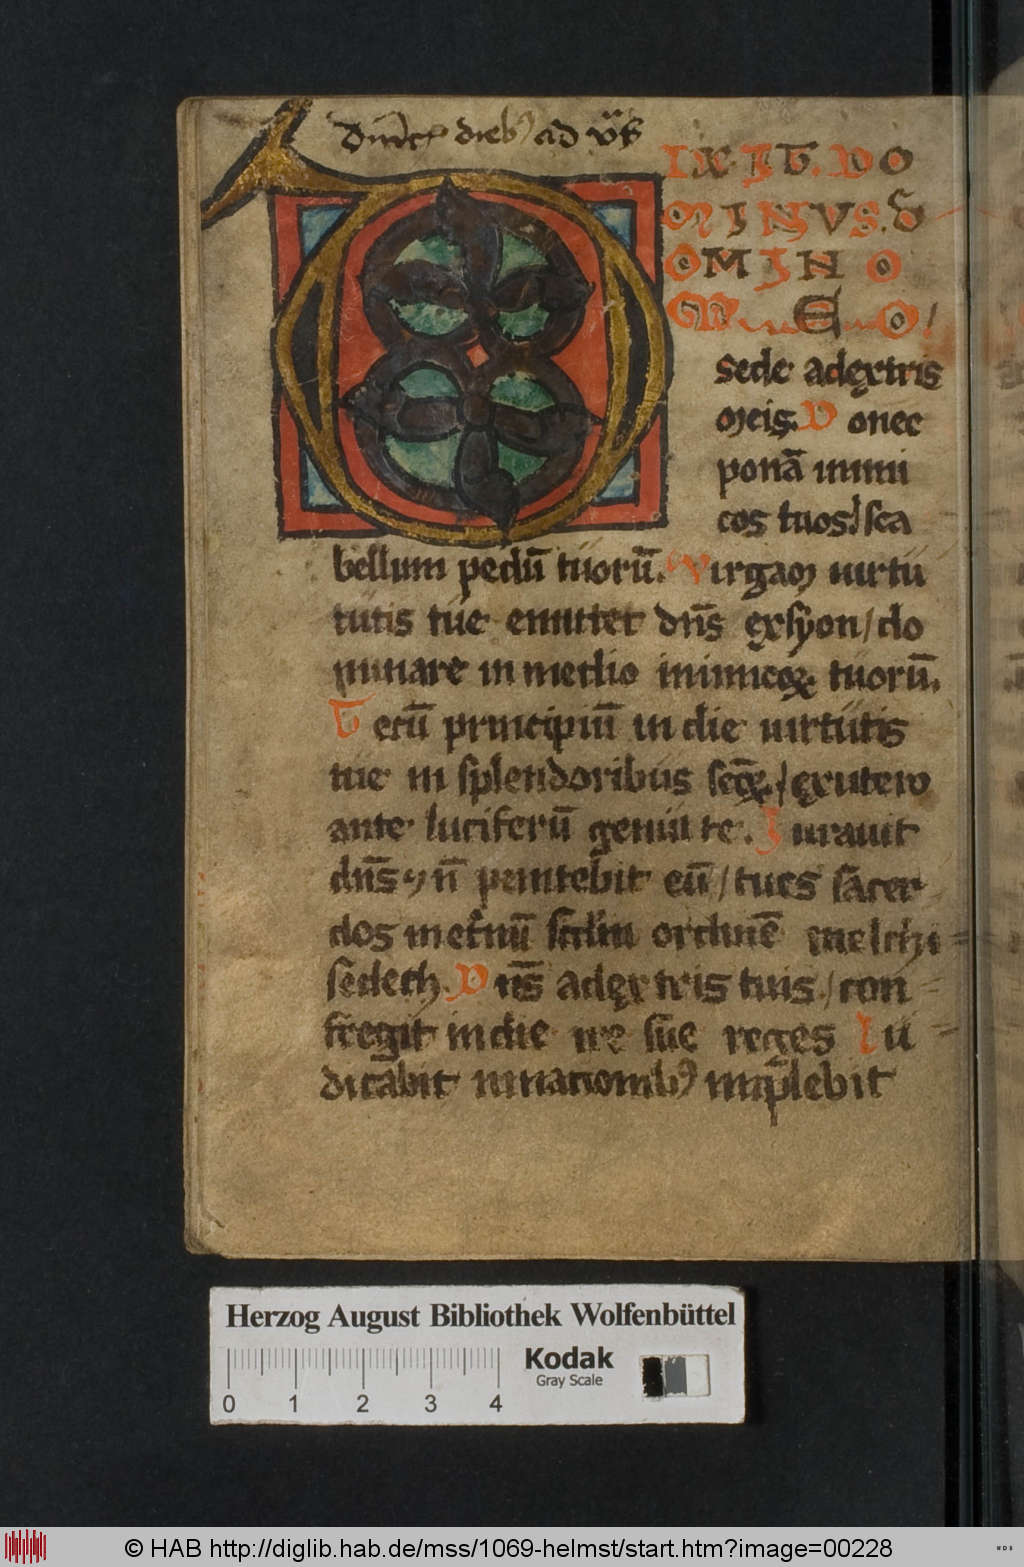 dn̄ic dieb⁹ ad v̄s
DIXIT. DO
MINUS. D
OMINO
MEO/
sede adextris
meis. Donec
ponā inimi
cos tuos/ sca
bellum pedū tuorū. Virgam uirtu
tutis tue emittet dn̄s exsyon/ do
minare in medio inimicoꝝ tuorū.
Tecū principiū in die uirtutis
tue in splendoribus scōꝝ/ exutero
ante luciferū genui te. Iurauit
dn̄s ⁊ n̄ penitebit eū/ tu es sacer
dos inet̄nū scdm ordinē melchi
sedech. Dn̄s adextris tuis/ con
fregit in die ire sue reges Iu
dicabit innationib⁹ implebit
Herzog August Bibliothek Wolfenbüttel
Kodak
Gray Scale
0 1 2 3 4
© HAB http://diglib.hab.de/mss/1069-helmst/start.htm?image=00228